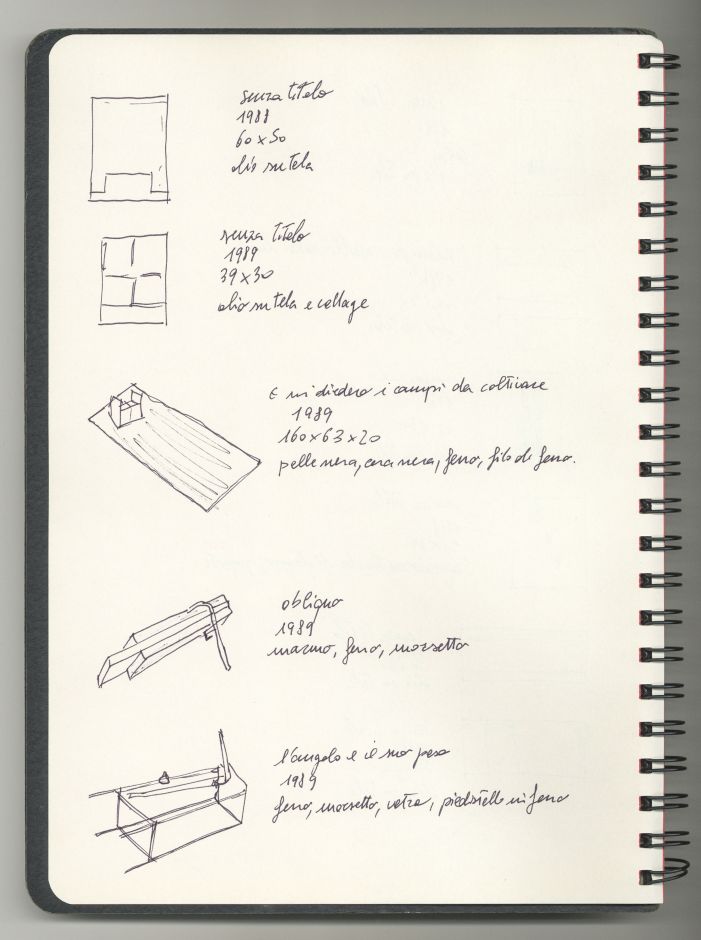 senza titolo
1988
60x50
olio su tela
senza titolo
1989
39x30
olio su tela e collage
E mi diedero i campi da coltivare
1989
160x63x20
pelle nera, cera nera, ferro, filo di ferro.
obliquo
1989
marmo, ferro, morsetto
l'angolo e il suo peso
1989
ferro, morsetto, vetro, piedistallo in ferro